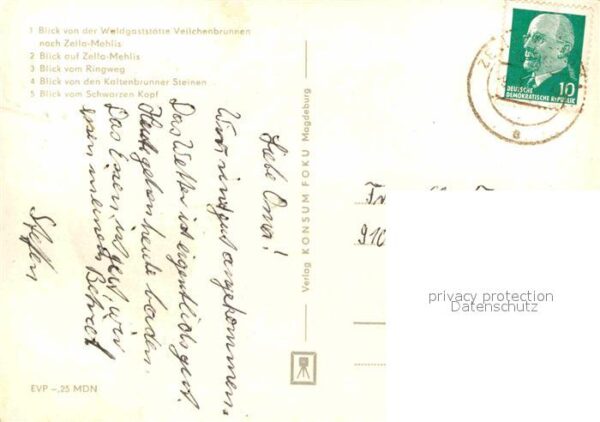 1 Blick von der Waldgaststätte Veilchenbrunnen
nach Zella-Mehlis
2 Blick auf Zella-Mehlis
3 Blick vom Ringweg
4 Blick von den Kaltenbrunner Steinen
5 Blick vom Schwarzen Kopf
Liebe Oma!
Wir sind gut angekommen.
Das Wetter ist eigentlich gut.
Heute gehen heute baden.
Das Essen ist gut, wir
Steffen
EVP -,25 MDN
Verlag KONSUM FOKU Magdeburg
DEUTSCHE
DEMOKRATISCHE REPUBLIK
10
a
910
privacy protection
Datenschutz